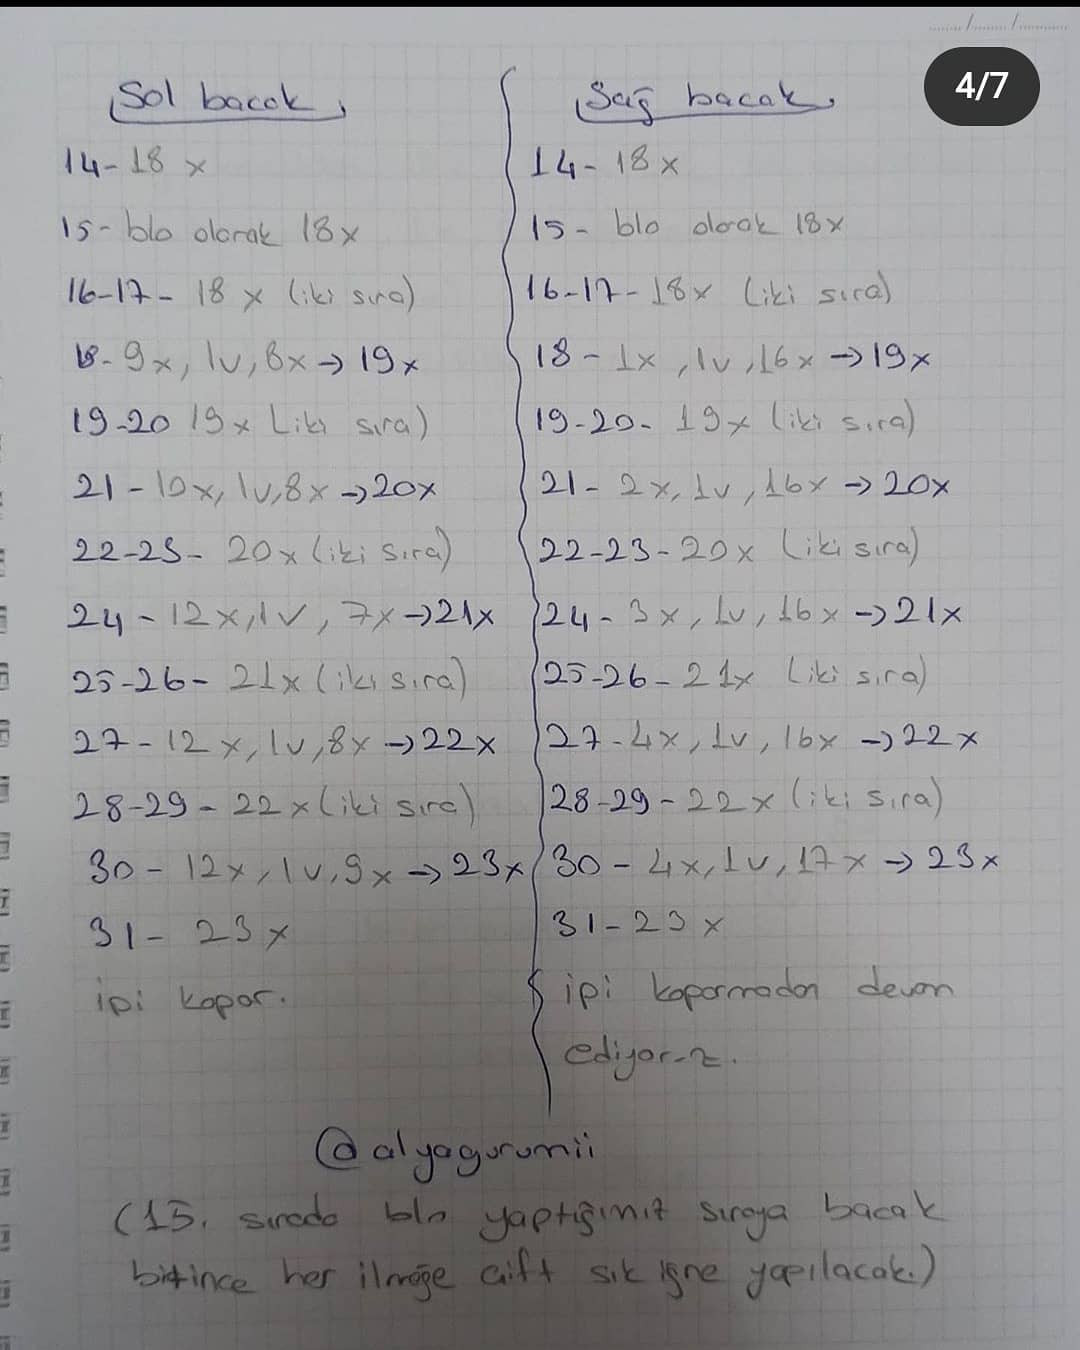 4/7
Sol bacak
14- 18 x
15- blo olarak 18x
16-17- 18 x (iki sıra)
18- 9x, 1v, 8x → 19x
19-20 19x (iki sıra)
21- 10x, 1v, 8x → 20x
22-23- 20x (iki sıra)
24- 12x, 1v, 7x → 21x
25-26- 21x (iki sıra)
27- 12x, 1v, 8x → 22x
28-29- 22x (iki sıra)
30- 12x, 1v, 9x → 23x
31- 23x
ipi kopar.
Sağ bacak
14- 18x
15- blo olarak 18x
16-17- 18x (iki sıra)
18- 1x, 1v, 16x → 19x
19-20- 19x (iki sıra)
21- 2x, 1v, 16x → 20x
22-23- 20x (iki sıra)
24- 3x, 1v, 16x → 21x
25-26- 21x (iki sıra)
27- 4x, 1v, 16x → 22x
28-29- 22x (iki sıra)
30- 4x, 1v, 17x → 23x
31- 23x
ipi koparmadan devam
ediyoruz.
@alyagurumii
(15. sırada blo yaptığımız sıraya bacak
bitince her ilmeğe çift sık iğne yapılacak.)